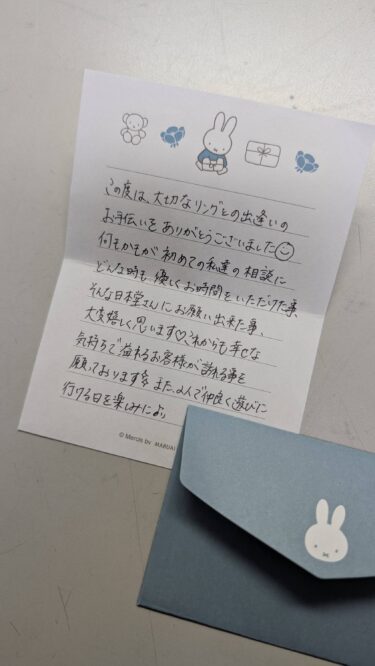 この度は、大切なリングとの出逢いの
お手伝いをありがとうございました
何もかもが初めての私達の相談に
どんな時も優しくお時間をいただけた事、
そんな日本堂さんにお願い出来た事、
大変嬉しく思います♡これからも幸せな
気持ちで溢れるお客様が訪れる事を
願っております また、2人で仲良く遊びに
行ける日を楽しみに
© Mercis bv MARUAI